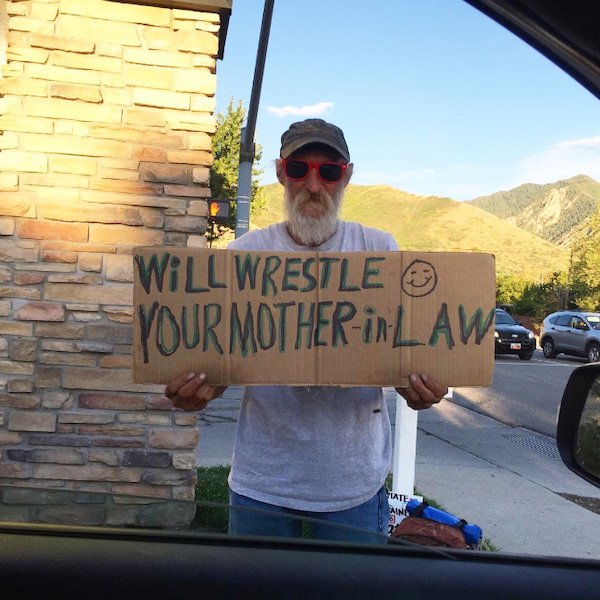 WiLL WRESTLE
YOUR MOTHER-in-LAW
TATE